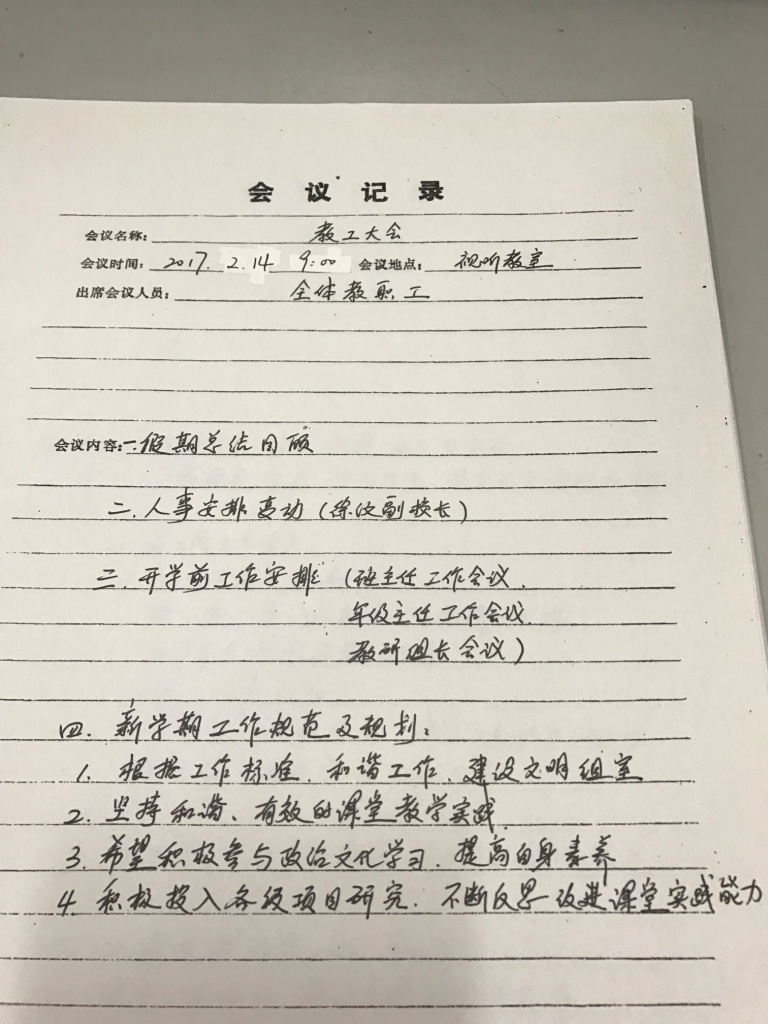 会议记录
会议名称: 教工大会
会议时间: 2017. 2.14 9:00 会议地点: 视听教室
出席会议人员: 全体教职工
会议内容: 一.假期总结回顾
二.人事安排变动(徐汶副校长)
三.开学前工作安排(班主任工作会议.
年级主任工作会议.
教研组长会议)
四.新学期工作规范及规划:
1.根据工作标准、和谐工作、建设文明组室
2.坚持和谐、有效的课堂教学实践
3.希望积极参与政治文化学习.提高自身素养
4.积极投入各级项目研究.不断反思改进课堂实践能力